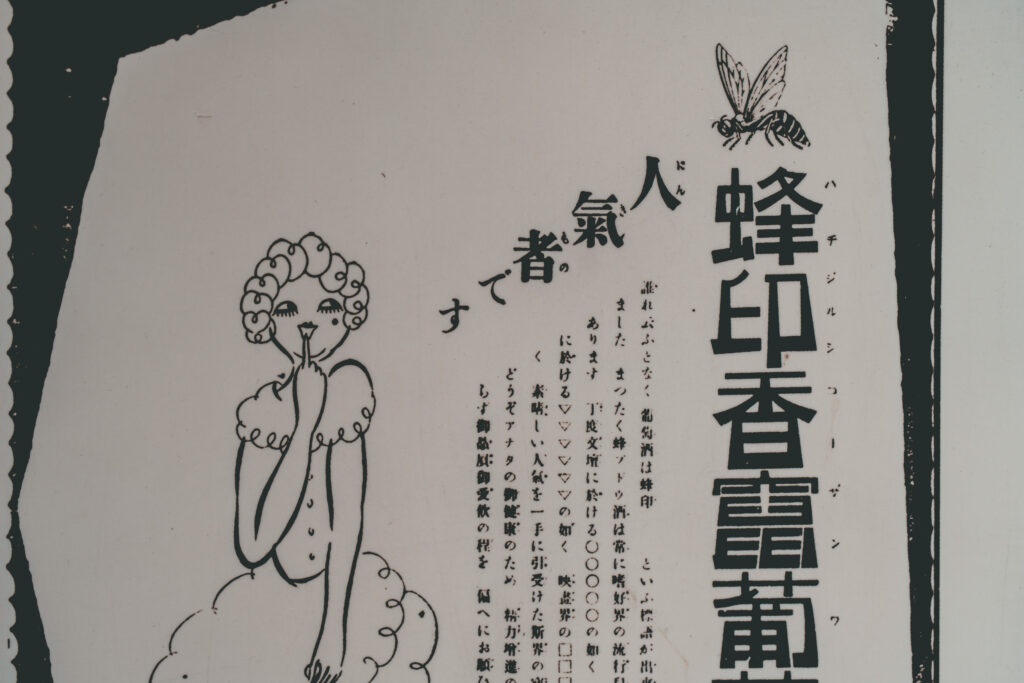 蜂印香竄葡
ハチジルシコーザンワ
人氣者です
にんきもの
誰れ云ふとなく 葡萄酒は蜂印 といふ標語が出來
ました まつたく蜂ブドウ酒は常に嗜好界の流行
あります 丁度文壇に於ける〇〇〇〇〇の如く
に於ける▽▽▽▽▽の如く 映畫界の□□□
く 素晴しい人氣を一手に引受けた斯界の
どうぞアナタの御健康のため 精力增進の
らず御贔屓御愛飲の程を 偏へにお願ひ